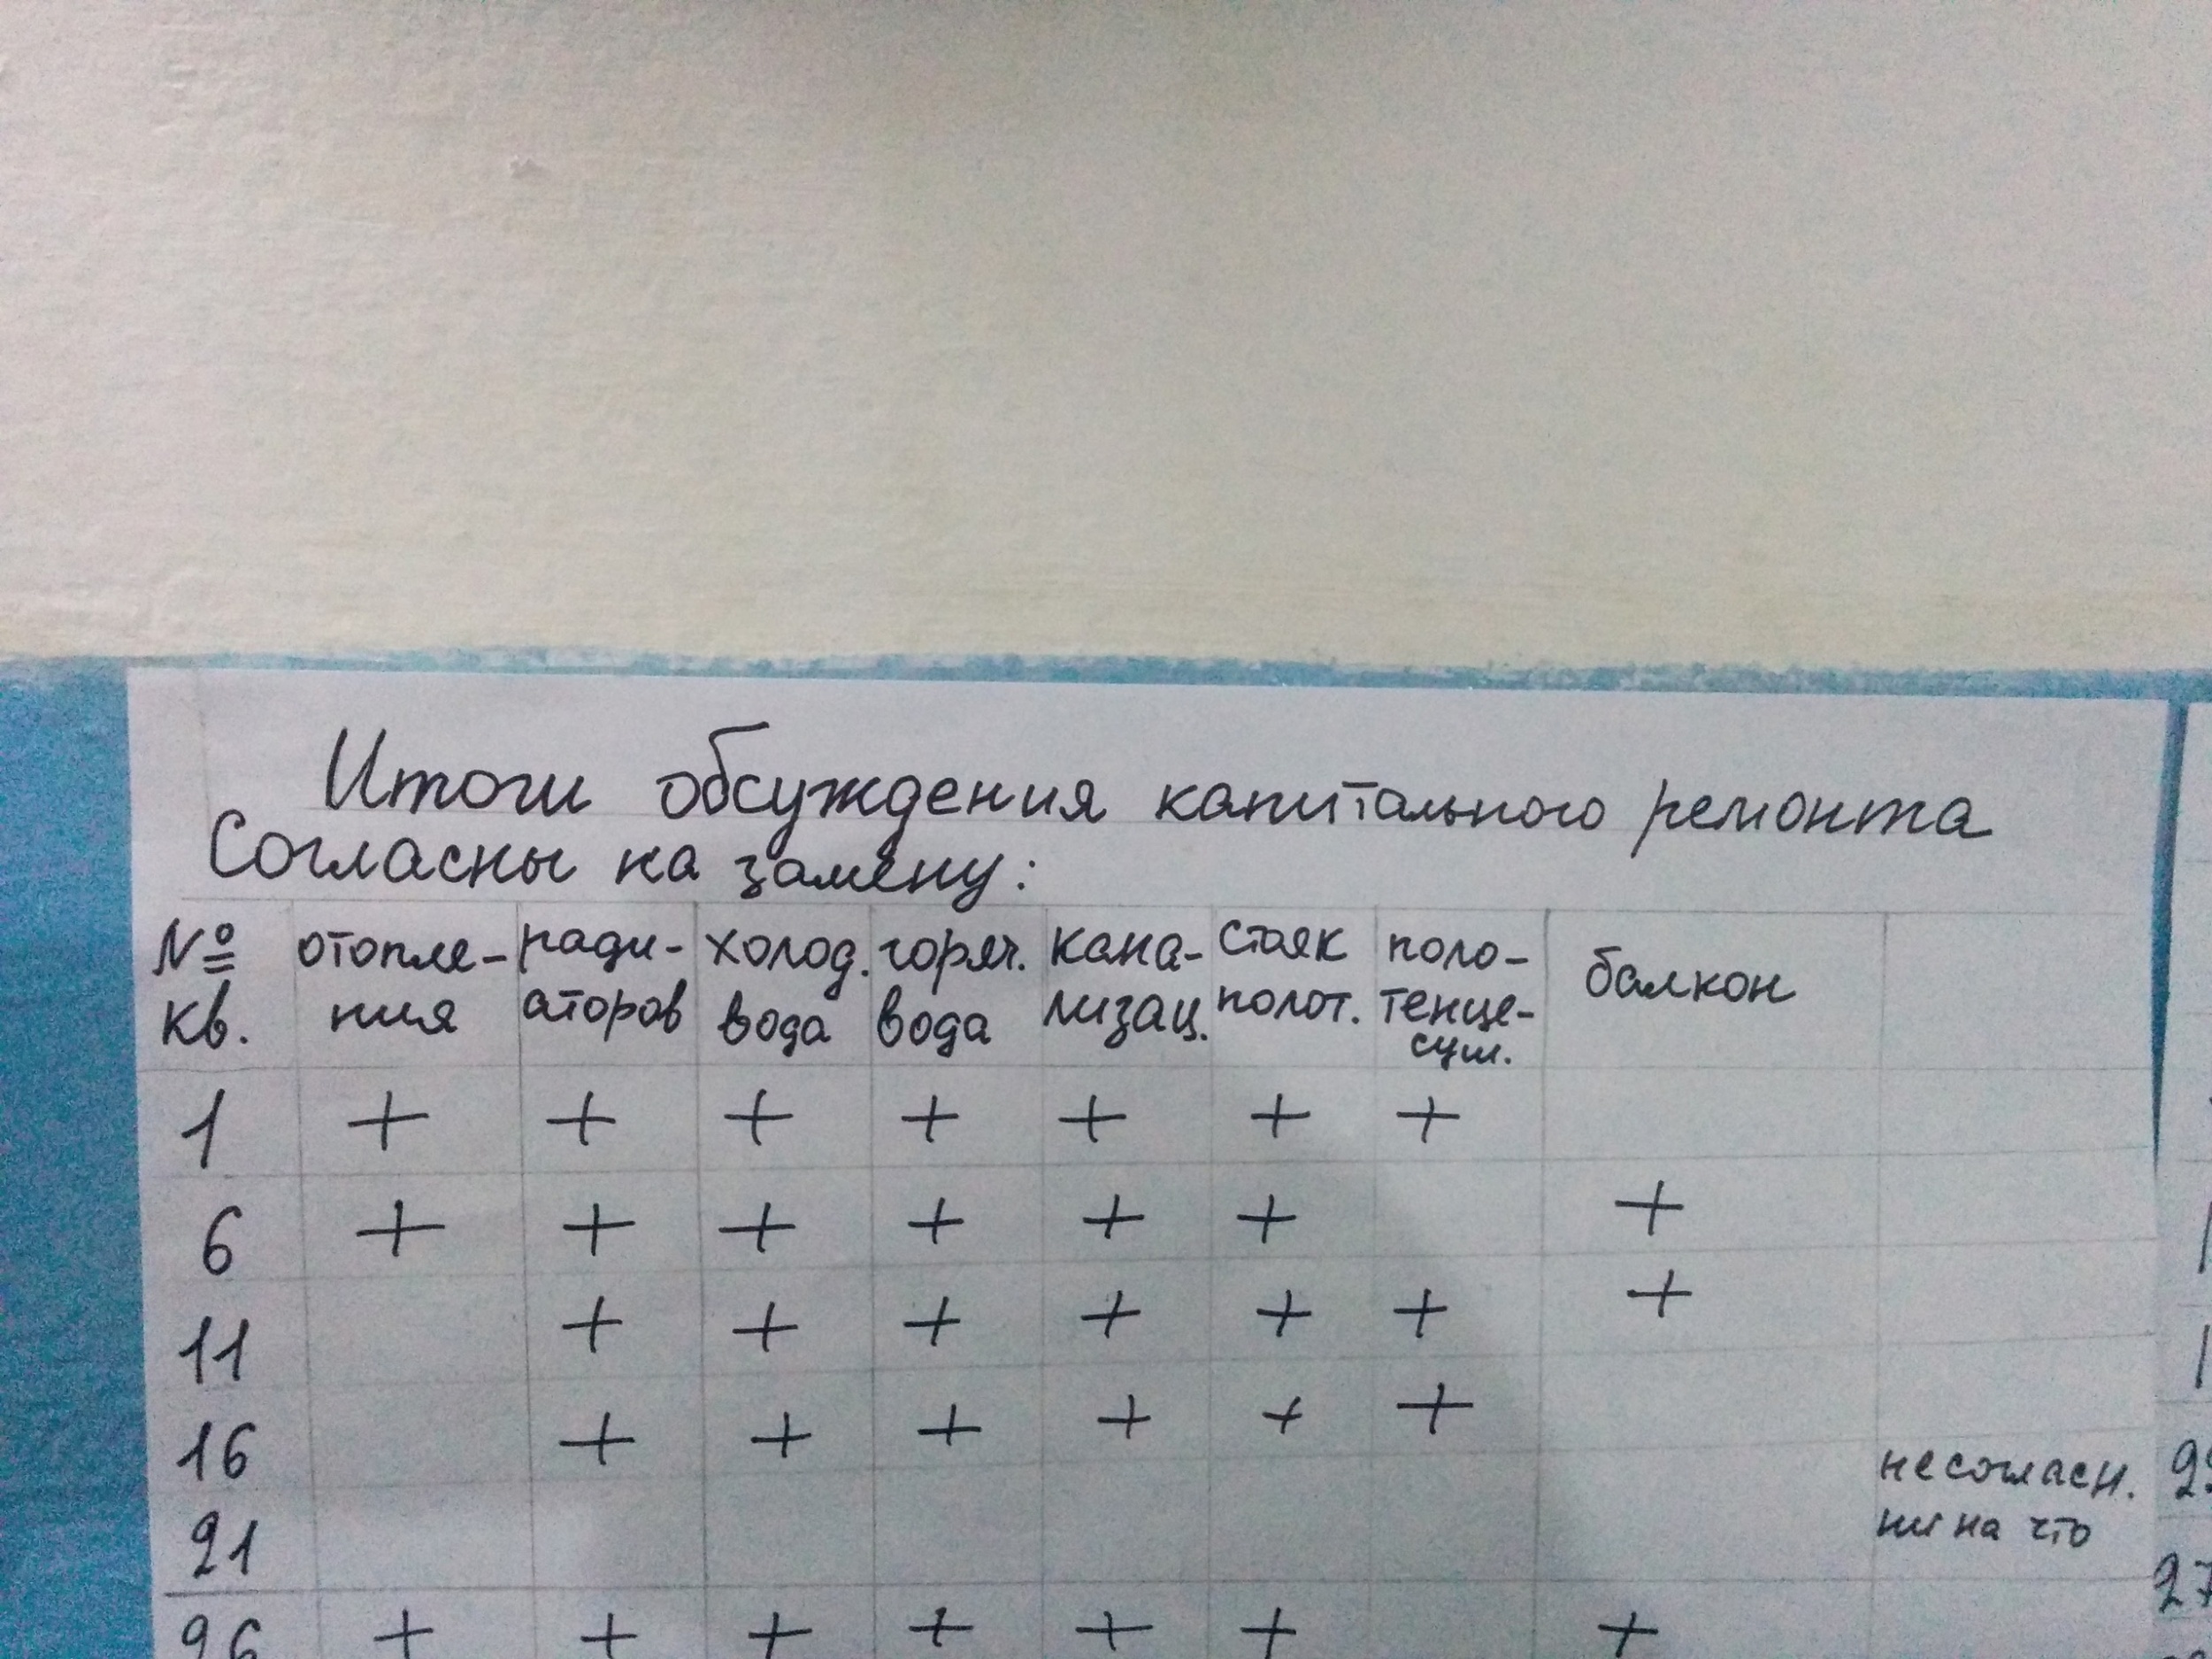 Итоги обсуждения капитального ремонта
Согласны на замену:
№ кв. отопле-ния ради-аторов холод. вода горяч. вода кана-лизац. стояк полот. поло-тенце-суш. балкон
1 + + + + + + +
6 + + + + + + +
11 + + + + + + +
16 + + + + + +
21 не согласн. ни на что
26 + + + + + + +
27